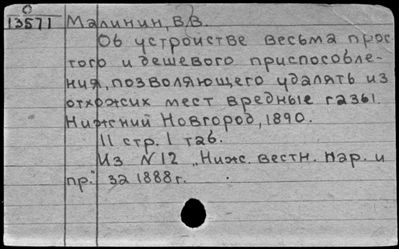 О
13571 Малинин, В.В.
Об устроистве весьма прос
того и дешевого приспособле-
ния, позволяющего удалять из
отхожих мест вредные газы.
Нижний Новгород, 1890.
11 стр. 1 таб.
Из N12 „Ниж. вестн. пар. и
пр." за 1888г.